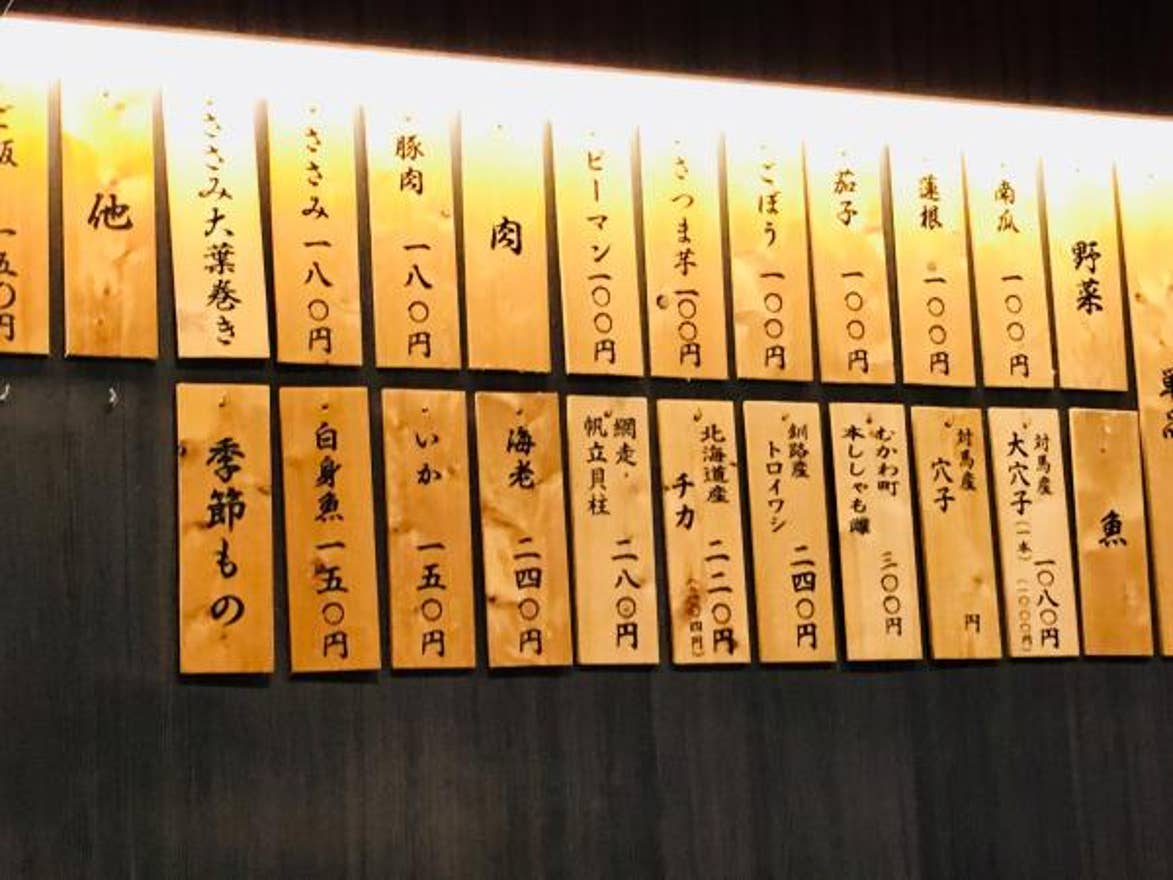 野菜
南瓜 一〇〇円
蓮根 一〇〇円
茄子 一〇〇円
ごぼう 一〇〇円
さつま芋 一〇〇円
ピーマン 一〇〇円
肉
豚肉 一八〇円
ささみ 一八〇円
ささみ大葉巻き
他
一五〇円
魚
対馬産
大穴子(一本) 一〇八〇円
(一〇〇〇円)
対馬産
穴子 円
むかわ町
本ししゃも雌 三〇〇円
釧路産
トロイワシ 二四〇円
北海道産
チカ 二二〇円
網走・
帆立貝柱 二八〇円
海老 二四〇円
いか 一五〇円
白身魚 一五〇円
季節もの